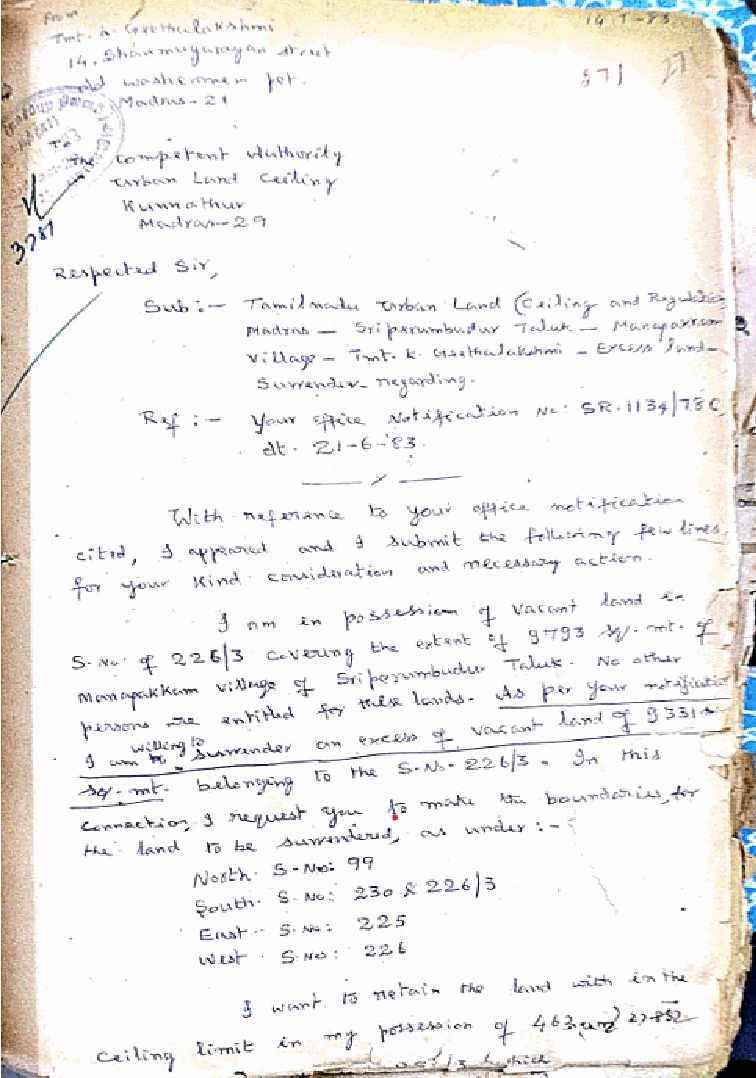 From
Tmt. K. Geethalakshmi
14, Shanmugarayan Street
old washermen pet.
Madras-21
14-7-83
271
271
The Competent Authority
Urban Land Ceiling
Kunnathur
Madras-29
3781
Respected Sir,
Sub:- Tamilnadu Urban Land (Ceiling and Regulation
Madras - Sriperumbudur Taluk - Manapakkam
Village - Tmt. K. Geethalakshmi - Excess land-
Surrender- regarding.
Ref:- Your office Notification No: SR.1134/78C
dt. 21-6-83.
With reference to your office notification
cited, I appeared and I submit the following few lines
for your kind consideration and necessary action.
I am in possession of vacant land in
S.No. of 226/3 covering the extent of 9793 sq.mt. of
Manapakkam village of Sriperumbudur Taluk. No other
persons are entitled for these lands. As per your notification
I am willing to surrender an excess of vacant land of 9331
sq.mt. belonging to the S.No-226/3. In this
connection, I request you to make the boundaries, for
the land to be surrendered, as under:-
North. S.No: 99
South. S.No: 230 & 226/3
East.. S.No: 225
West. S.No: 226
I want to retain the land with in the
Ceiling limit in my possession of 463
which